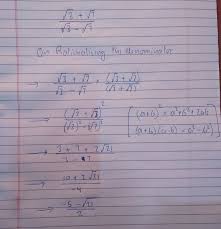 √3 + √7
√3 - √7
On Rationalising the denominator
→ √3 + √7 × (√3 + √7)
√3 - √7 (√3 + √7)
→ (√3 + √7)²
(√3)² - (√7)²
[(a+b)² = a²+b²+2ab
(a+b)(a-b) = a²-b²]
→ 3 + 7 + 2√21
3 - 7
→ 10 + 2√21
-4
→ -5 - √21
2